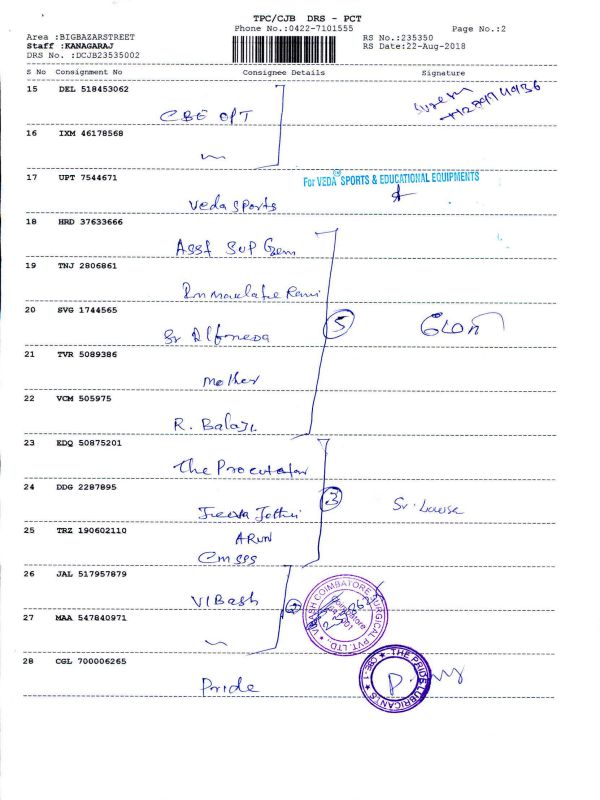 TPC/CJB DRS - PCT
Phone No.:0422-7101555 Page No.:2
Area :BIGBAZARSTREET RS No.:235350
Staff :KANAGARAJ RS Date:22-Aug-2018
DRS No. :DCJB23535002
S No Consignee Details Signature
15 DEL 518453062
CBE OPT
16 IXM 46178568
17 UPT 7544671
For VEDA SPORTS & EDUCATIONAL EQUIPMENTS
Veda Sports
18 HRD 37633666
Asst Sup
19 TNJ 2806861
20 SVG 1744565
5
Sr
21 TVR 5089386
Mother
22 VCM 505975
R. Balaji
23 EDQ 50875201
The
24 DDG 2287895
3
Sr.
25 TRZ 190602110
ARUN
26 JAL 517957879
VIBash
COIMBATORE SURGICAL PVT. LTD
27 MAA 547840971
28 CGL 700006265
THE PRIDE LUBRICANTS ★ CBE-1 ★
Pride